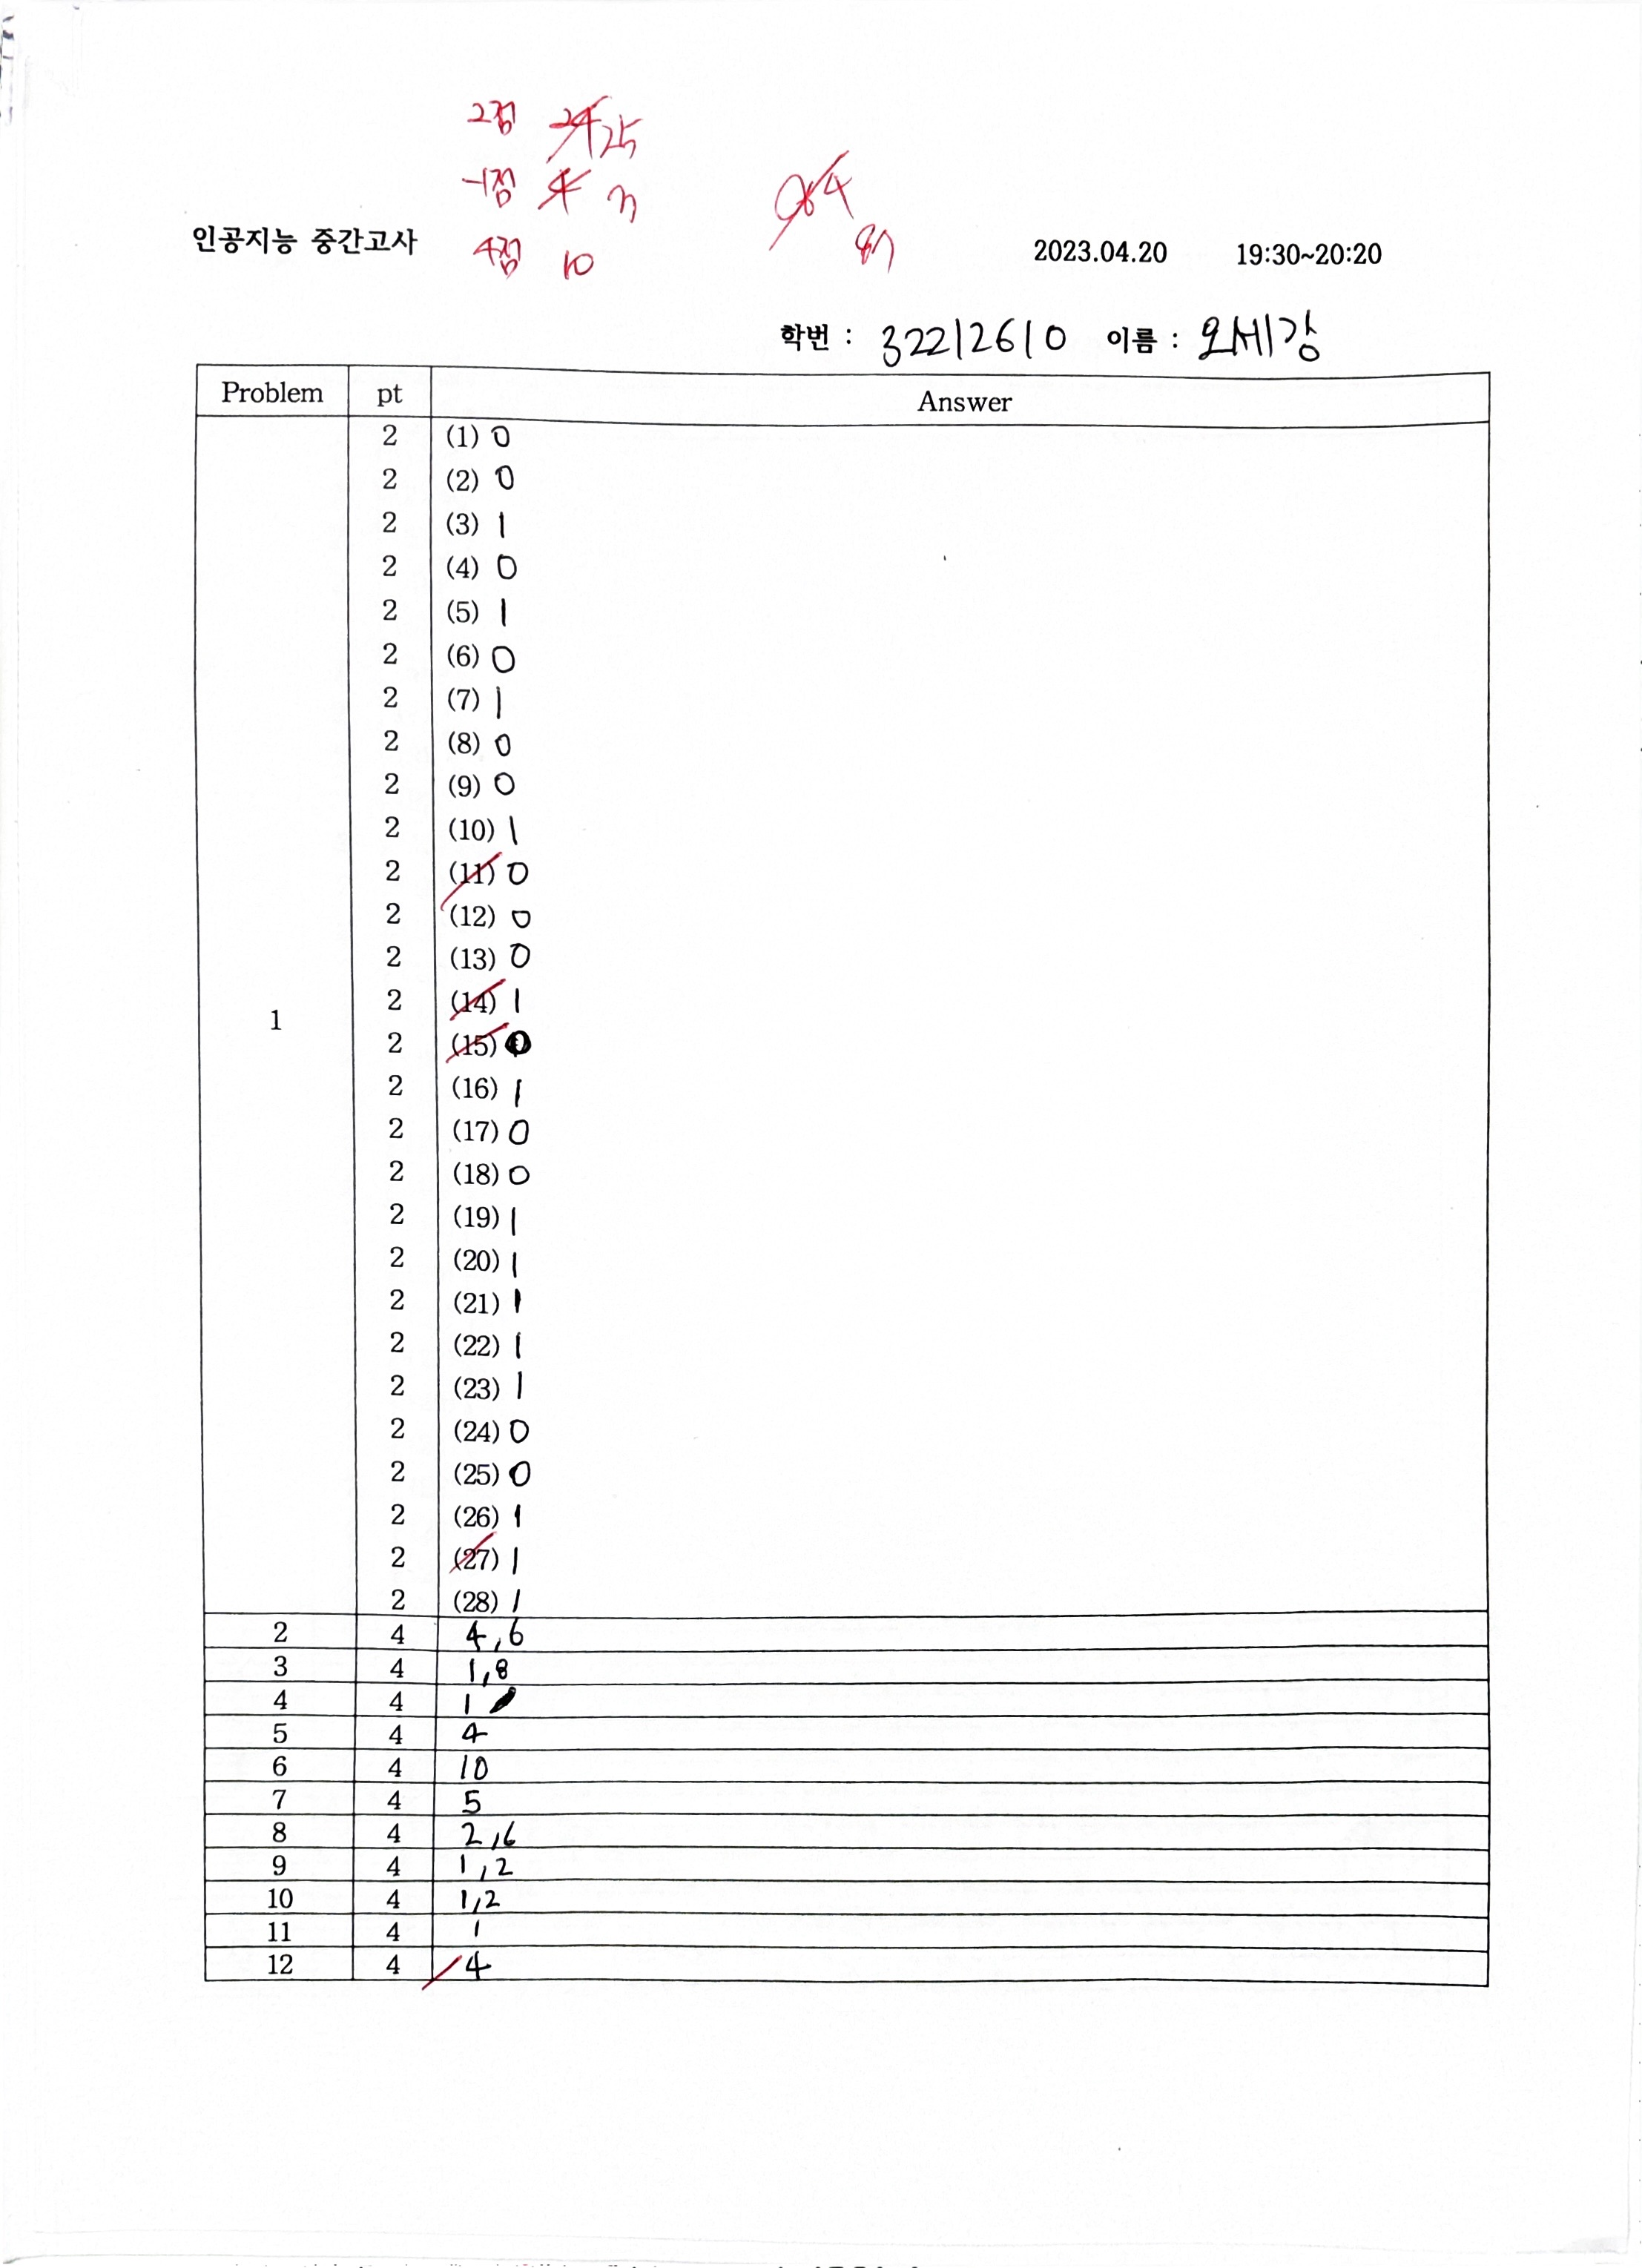 2점 24 25
-1점 4 3
4점 10
84
87
인공지능 중간고사 2023.04.20 19:30~20:20
학번 : 32212610 이름 : 오세강
Problem pt Answer
1
2 (1) 0
2 (2) 0
2 (3) 1
2 (4) 0
2 (5) 1
2 (6) 0
2 (7) 1
2 (8) 0
2 (9) 0
2 (10) 1
2 (11) 0
2 (12) 0
2 (13) 0
2 (14) 1
2 (15) 0
2 (16) 1
2 (17) 0
2 (18) 0
2 (19) 1
2 (20) 1
2 (21) 1
2 (22) 1
2 (23) 1
2 (24) 0
2 (25) 0
2 (26) 1
2 (27) 1
2 (28) 1
2 4 4,6
3 4 1,8
4 4 1
5 4 4
6 4 10
7 4 5
8 4 2,6
9 4 1,2
10 4 1,2
11 4 1
12 4 4